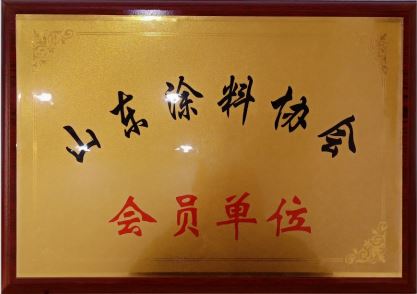 山东涂料协会
会员单位